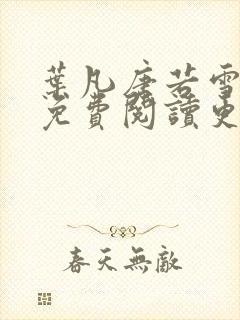 葉凡唐若雪
免費閱讀更
春天無敵